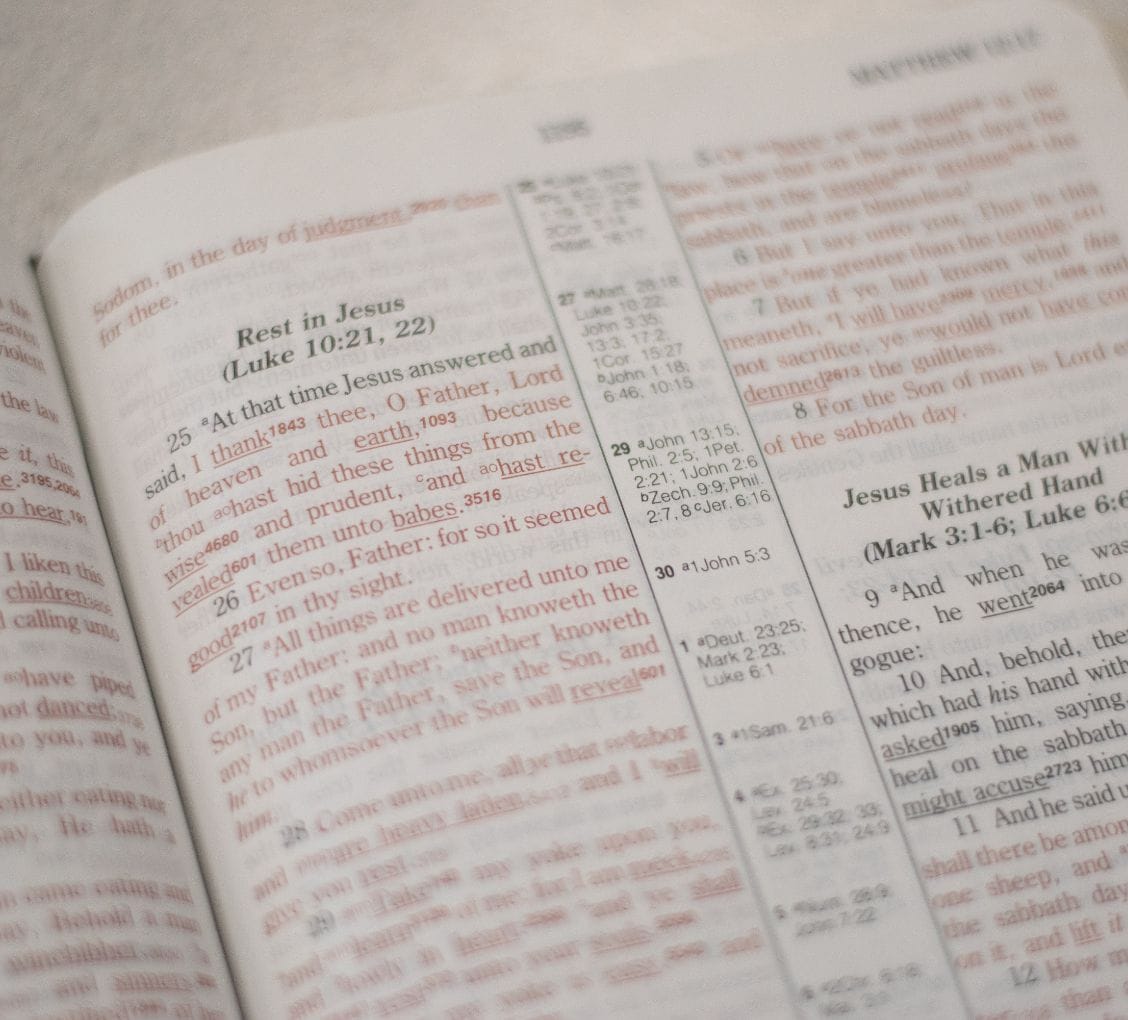 MATTHEW
Sodom, in the day of judgment, than
for thee.
Rest in Jesus
(Luke 10:21, 22)
25 ᵃAt that time Jesus answered and
said, I thank¹⁸⁴³ thee, O Father, Lord
of heaven and earth,¹⁰⁹³ because
ᵇthou ᵃᵒhast hid these things from the
wise⁴⁶⁸⁰ and prudent, ᶜand ᵃᵒhast re-
vealed⁶⁰¹ them unto babes.³⁵¹⁶
26 Even so, Father: for so it seemed
good²¹⁰⁷ in thy sight.
27 ᵃAll things are delivered unto me
of my Father: and no man knoweth the
Son, but the Father; ᵇneither knoweth
any man the Father, save the Son, and
he to whomsoever the Son will reveal⁶⁰¹
him.
28 Come unto me, all ye that labor
and are heavy laden, and I will
give you rest.
29 Take my yoke upon you,
and learn of me; for I am meek
and lowly in heart: and ye shall
rest unto your souls.
27 ᵃMatt. 28:18;
Luke 10:22;
John 3:35;
13:3; 17:2;
1Cor. 15:27
ᵇJohn 1:18;
6:46; 10:15
29 ᵃJohn 13:15;
Phil. 2:5; 1Pet.
2:21; 1John 2:6
ᵇZech. 9:9; Phil.
2:7, 8 ᶜJer. 6:16
30 ᵃ1John 5:3
1 ᵃDeut. 23:25;
Mark 2:23;
Luke 6:1
3 ᵃ1Sam. 21:6
4 ᵃEx. 25:30;
Lev. 24:5
ᵇEx. 29:32, 33;
Lev. 8:31; 24:9
5 ᵃNum. 28:9
John 7:22
5 Or have ye not read in the
law, how that on the sabbath days the
priests in the temple profane the
sabbath, and are blameless?
6 But I say unto you, That in this
place is one greater than the temple.
7 But if ye had known what this
meaneth, I will have mercy, and
not sacrifice, ye would not have con
demned²⁶¹³ the guiltless.
8 For the Son of man is Lord e
of the sabbath day.
Jesus Heals a Man With
Withered Hand
(Mark 3:1-6; Luke 6:6
9 ᵃAnd when he was
thence, he went²⁰⁶⁴ into
gogue:
10 And, behold, the
which had his hand with
asked¹⁹⁰⁵ him, saying,
heal on the sabbath
might accuse²⁷²³ him
11 And he said u
shall there be amon
one sheep, and
the sabbath day
on it, and lift it
12 How m
than
the law
e it, this
to hear,
I liken this
children
calling unto
have piped
not danced;
to you, and ye
neither eating nor
say, He hath a
came eating and
say, Behold a man
winebibber, a
and sinners